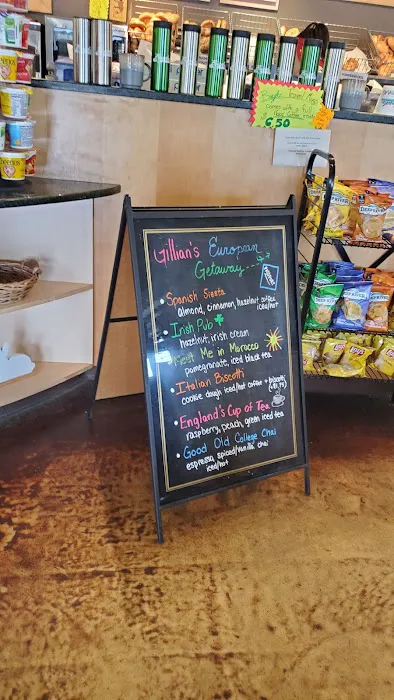 comes with a full
6.50
Gillian's European
Getaway...
• Spanish Siesta
almond, cinnamon, hazelnut coffee
iced/hot
• Irish Pub
hazelnut, irish cream
• Meet Me in Morocco
pomegranate, iced black tea
• Italian Biscotti
cookie dough iced/hot coffee + biscotti
• England's Cup of Tea
raspberry, peach, green iced tea
• Good Old College Chai
espresso, spiced/vanilla chai
iced/hot
Cheerios
Lay's